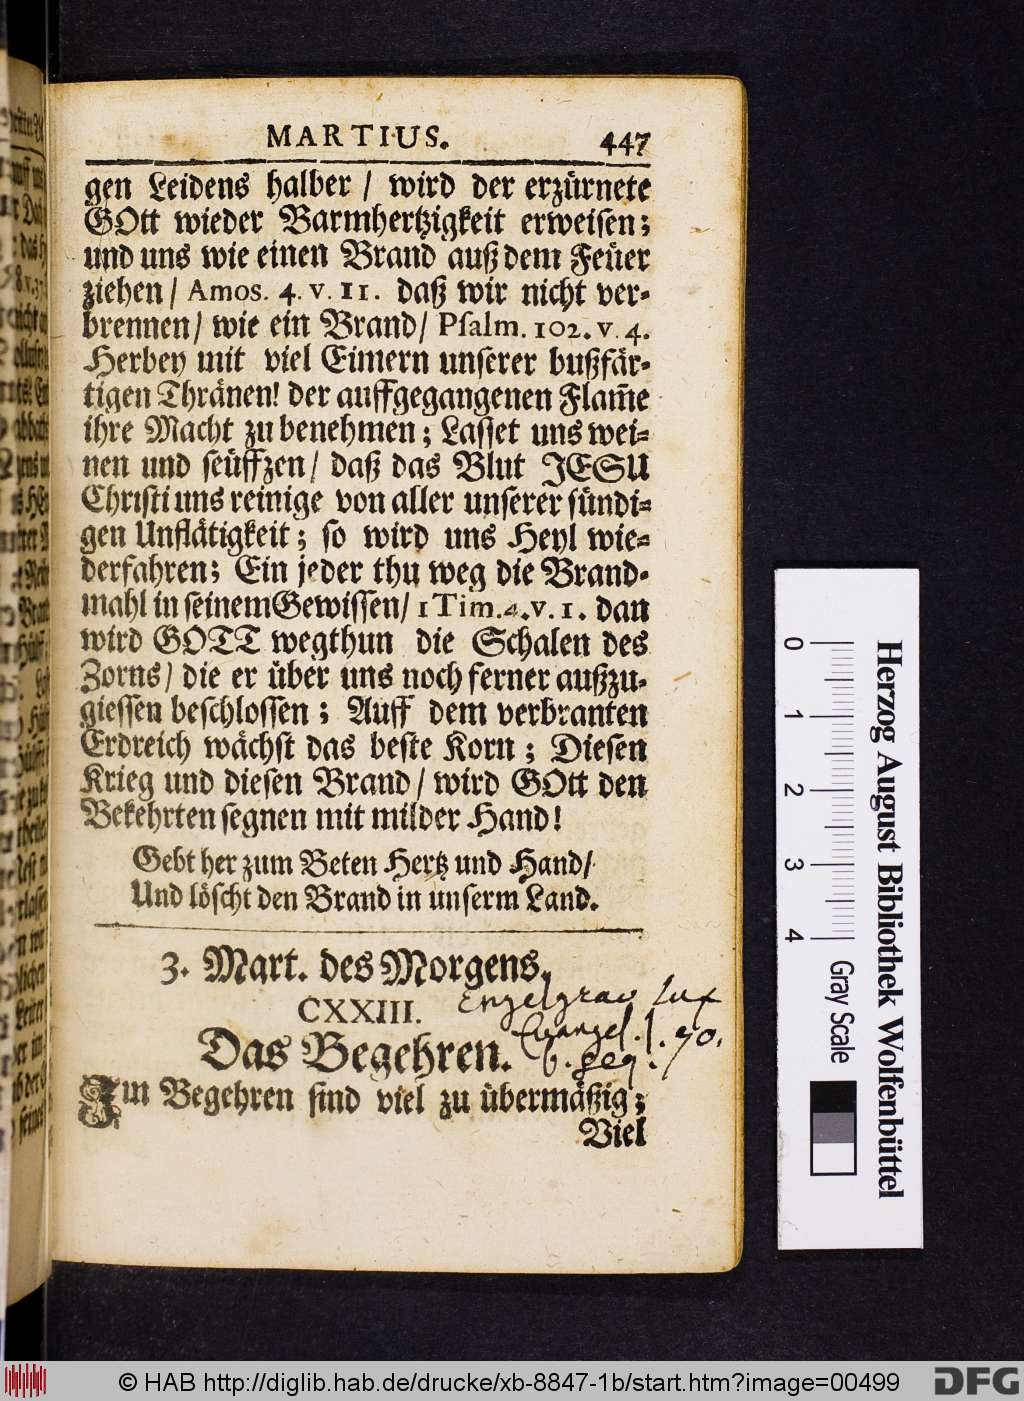 MARTIUS. 447
gen Leidens halber / wird der erzürnete
GOtt wieder Barmhertzigkeit erweisen;
und uns wie einen Brand auß dem Feüer
ziehen / Amos. 4. v. 11. daß wir nicht ver-
brennen / wie ein Brand / Psalm. 102. v. 4.
Herbey mit viel Eimern unserer bußfär-
tigen Thränen! der auffgegangenen Flam̃e
ihre Macht zu benehmen; Lasset uns wei-
nen und seüffzen / daß das Blut JESU
Christi uns reinige von aller unserer sündi-
gen Unflätigkeit; so wird uns Heyl wie-
derfahren; Ein jeder thu weg die Brand-
mahl in seinem Gewissen / 1 Tim. 4. v. 1. dan
wird GOTT wegthun die Schalen des
Zorns / die er über uns noch ferner außzu-
giessen beschlossen; Auff dem verbranten
Erdreich wächst das beste Korn; Diesen
Krieg und diesen Brand / wird GOtt den
Bekehrten segnen mit milder Hand!
Gebt her zum Beten Hertz und Hand /
Und löscht den Brand in unserm Land.
3. Mart. des Morgens.
CXXIII. Engelgrav lux
Evangel.
Das Begehren.
Im Begehren sind viel zu übermäßig;
Viel
0 1 2 3 4
Gray Scale
Herzog August Bibliothek Wolfenbüttel
© HAB http://diglib.hab.de/drucke/xb-8847-1b/start.htm?image=00499
DFG